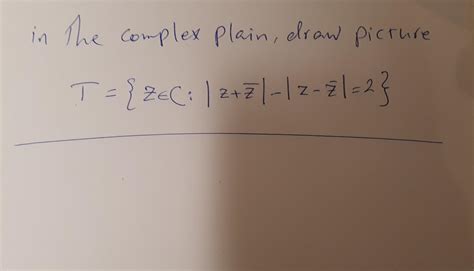 in The complex plain, draw picture
T = { z∈C: |z+z̄|-|z-z̄|=2}